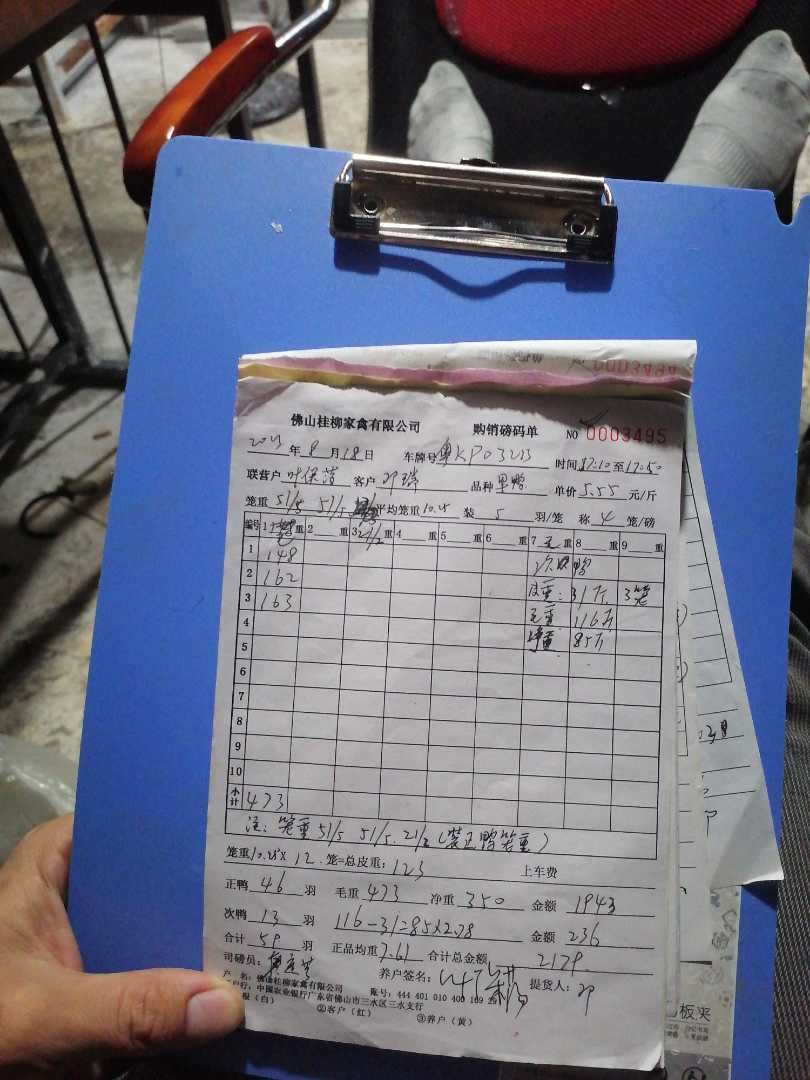 佛山桂柳家禽有限公司 购销磅码单 NO 0003495
年 8 月 18 日 车牌号 粤KP032B 时间 17:10 至 17:50
联营户 叶保 客户 邓瑞 品种 单价 5.55 元/斤
笼重 51/5 51/5 平均笼重 10.25 装 5 羽/笼 称 4 笼/磅
编号 1 重 2 重 3 21/2 重 4 重 5 重 6 重 7 重 8 重 9 重
1 148 次 鸭
2 162 皮重: 31斤 3笼
3 163 毛重 116斤
4 净重 85斤
5
6
7
8
9
10
小计 473
注: 笼重 51/5 51/5. 21/2 (装正鸭笼重)
笼重 10.25 × 12 笼=总皮重: 123 上车费
正鸭 46 羽 毛重 473 净重 350 金额 1943
次鸭 13 羽 116-31=85×2.78 金额 236
合计 59 羽 正品均重 7.61 合计总金额 2179.
司磅员: 养户签名: 提货人: 邓
户 名: 佛山桂柳家禽有限公司 账号: 444 401 010 400 169 25
户行: 中国农业银行广东省佛山市三水区三水支行
根(白) ②客户(红) ③养户(黄)
板夹